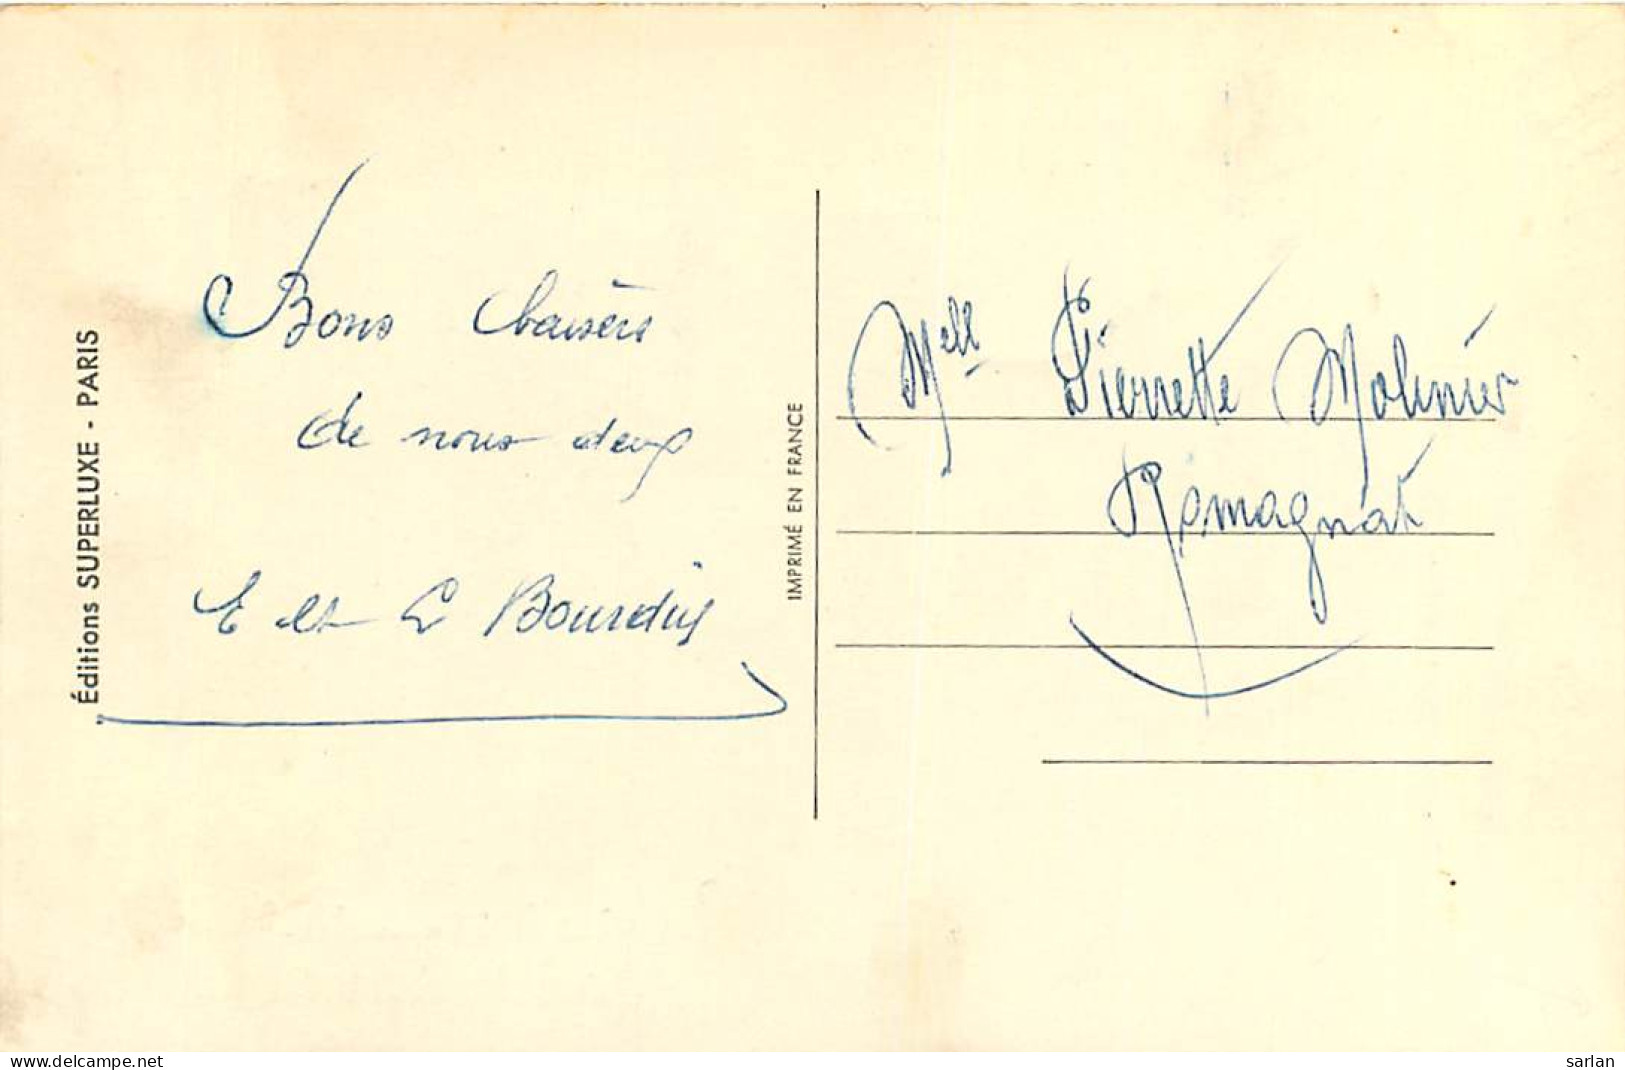 Éditions SUPERLUXE - PARIS
Bons baisers
de nous deux
E et L
IMPRIMÉ EN FRANCE
Mell Pierrette Molinier
Romagnat
www.delcampe.net
sarlan